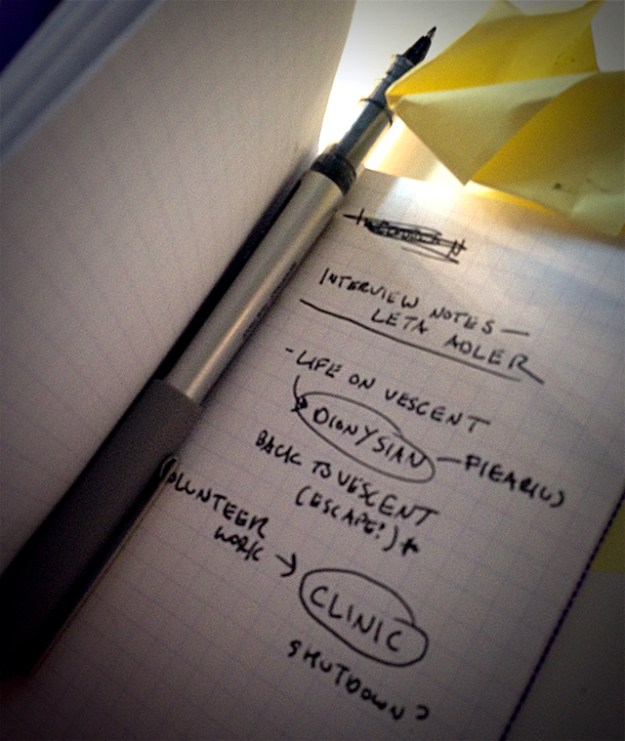 INTERVIEW NOTES —
LETA ADLER
- LIFE ON VESCENT
DIONYSIAN — PIEARIUS
BACK TO VESCENT
(ESCAPE?)*
VOLUNTEER
WORK → CLINIC
SHUTDOWN?